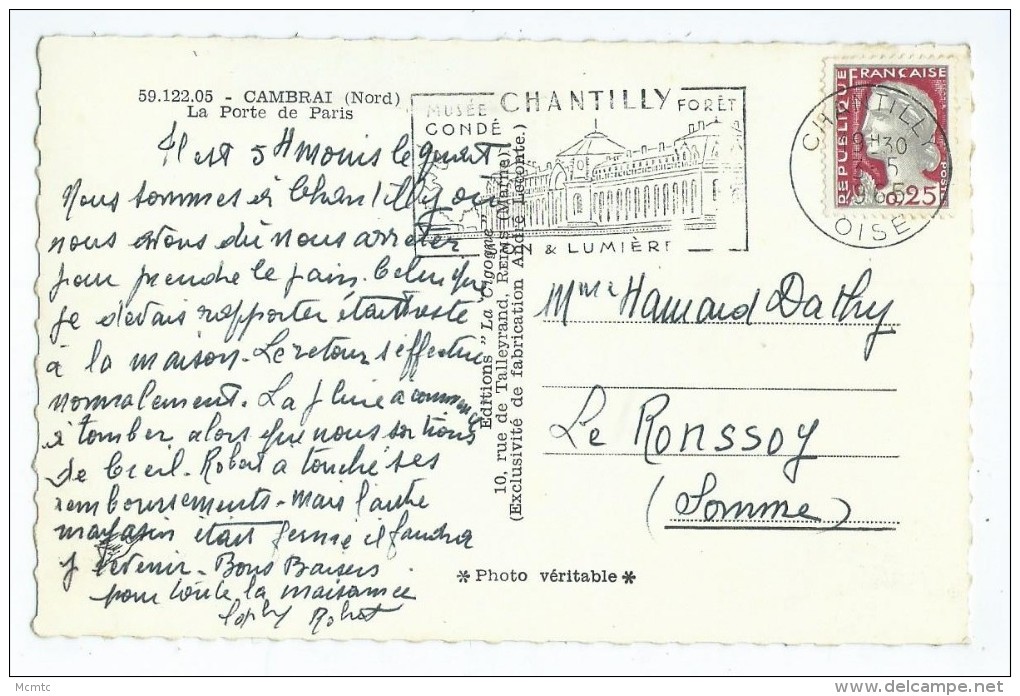 59.122.05 - CAMBRAI (Nord)
La Porte de Paris
Il est 5 H moins le quart
Nous sommes à Chantilly où
nous avons dû nous arrêter
pour prendre le pain. Celui que
je devais rapporter était resté
à la maison. Le retour s'effectue
normalement. La pluie a commencé
à tomber alors que nous sortions
de Creil. Robert a touché ses
remboursements - mais l'autre
magasin était fermé il faudra
y revenir. Bons Baisers
pour toute la maisonnée
Robert
Editions "La Cigogne"
10, rue de Talleyrand, REIMS (Marne)
(Exclusivité de fabrication André Leconte.)
MUSÉE
CONDÉ
CHANTILLY
FORÊT
SON & LUMIÈRE
CHANTILLY
OISE
RÉPUBLIQUE FRANÇAISE
POSTES
0,25
Mme Hamard Dathy
Le Ronssoy
(Somme)
* Photo véritable *
Mcmtc
delcampe.net